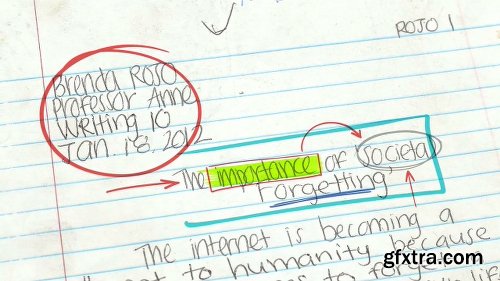 ROJO 1
Brenda ROJO
Professor Anne
Writing 10
Jan. 18. 2012
The importance of Societal
Forgetting
The internet is becoming a
to humanity because
to
gfxtra.com